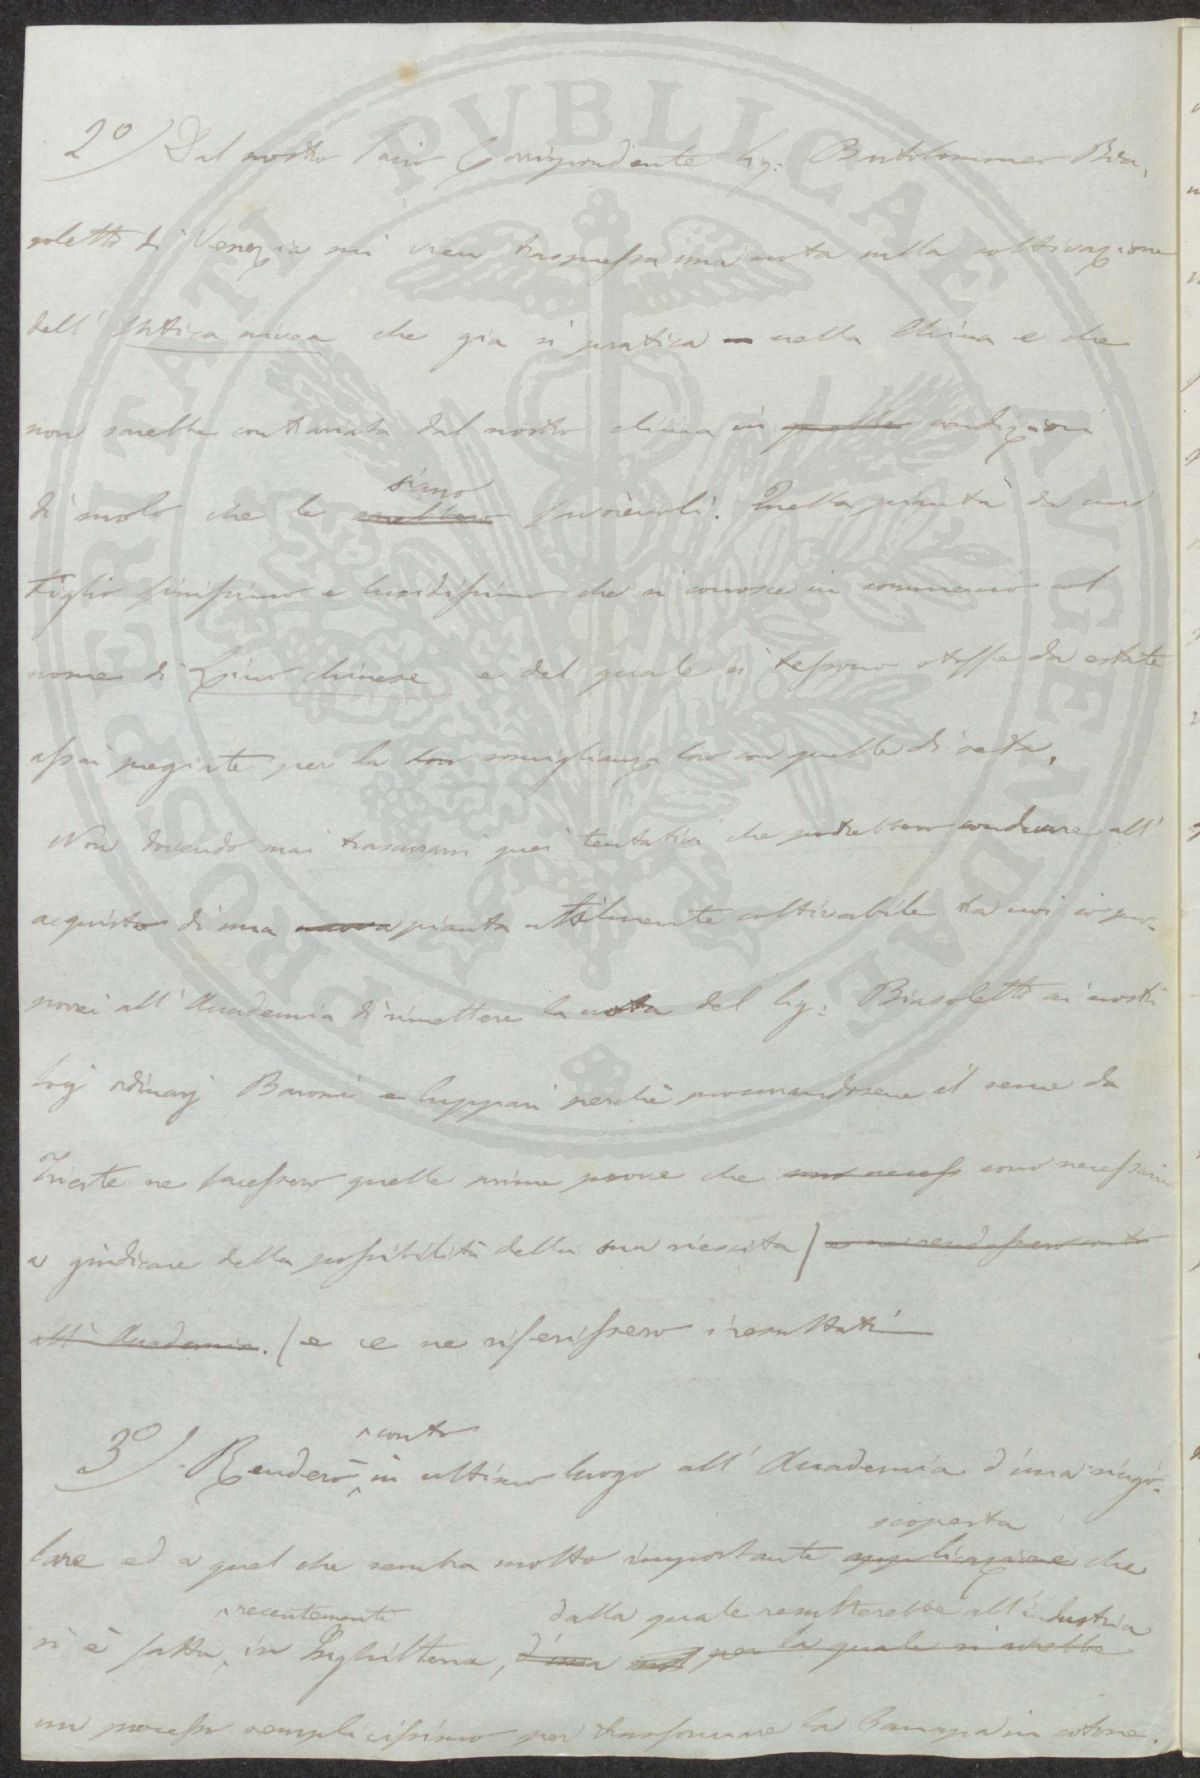 2º) Dal nostro Socio Corrispondente Sig: Bartolommeo Bia,
soletto di Venezia mi vien trasmessa una nota sulla coltivazione
dell' Urtica nivea che già si pratica nella China e che
non sarebbe contrariata dal nostro clima in quelle condizioni
siano
di suolo che le sarebbero favorevoli. Quella pianta dà un
Tiglio finissimo e lucidissimo che si conosce in commercio col
nome di Lino chinese e del quale si tessono stoffe da estate
assai pregiate per la loro somiglianza loro con quelle di seta.
Non dovendo mai trascurarsi quei tentativi che potrebbero condurre all'
acquisto di una nuova pianta utilmente coltivabile tra noi io pro-
porrei all' Accademia di rimettere la nota del Sig: Biasoletto ai nostri
Socj ordinarj Baroni e perchè procurandosene il seme da
Trieste ne facessero quelle prime prove che sono necess sono necessarie
a giudicare della possibilità della sua riescita / e ne rendessero conto
all' Accademia. / e ce ne riferissero i resultati
conto
3º) Renderò in ultimo luogo all' Accademia d'una singo-
scoperta
lare ed a quel che sembra molto importante applicazione che
recentemente dalla quale resulterebbe all' industria
si è fatta in Inghilterra, d'una per la quale si avrebbe
un processo semplicissimo per trasformare la Canapa in cotone.
PROSPERITATI PVBLICAE AVGENDAE